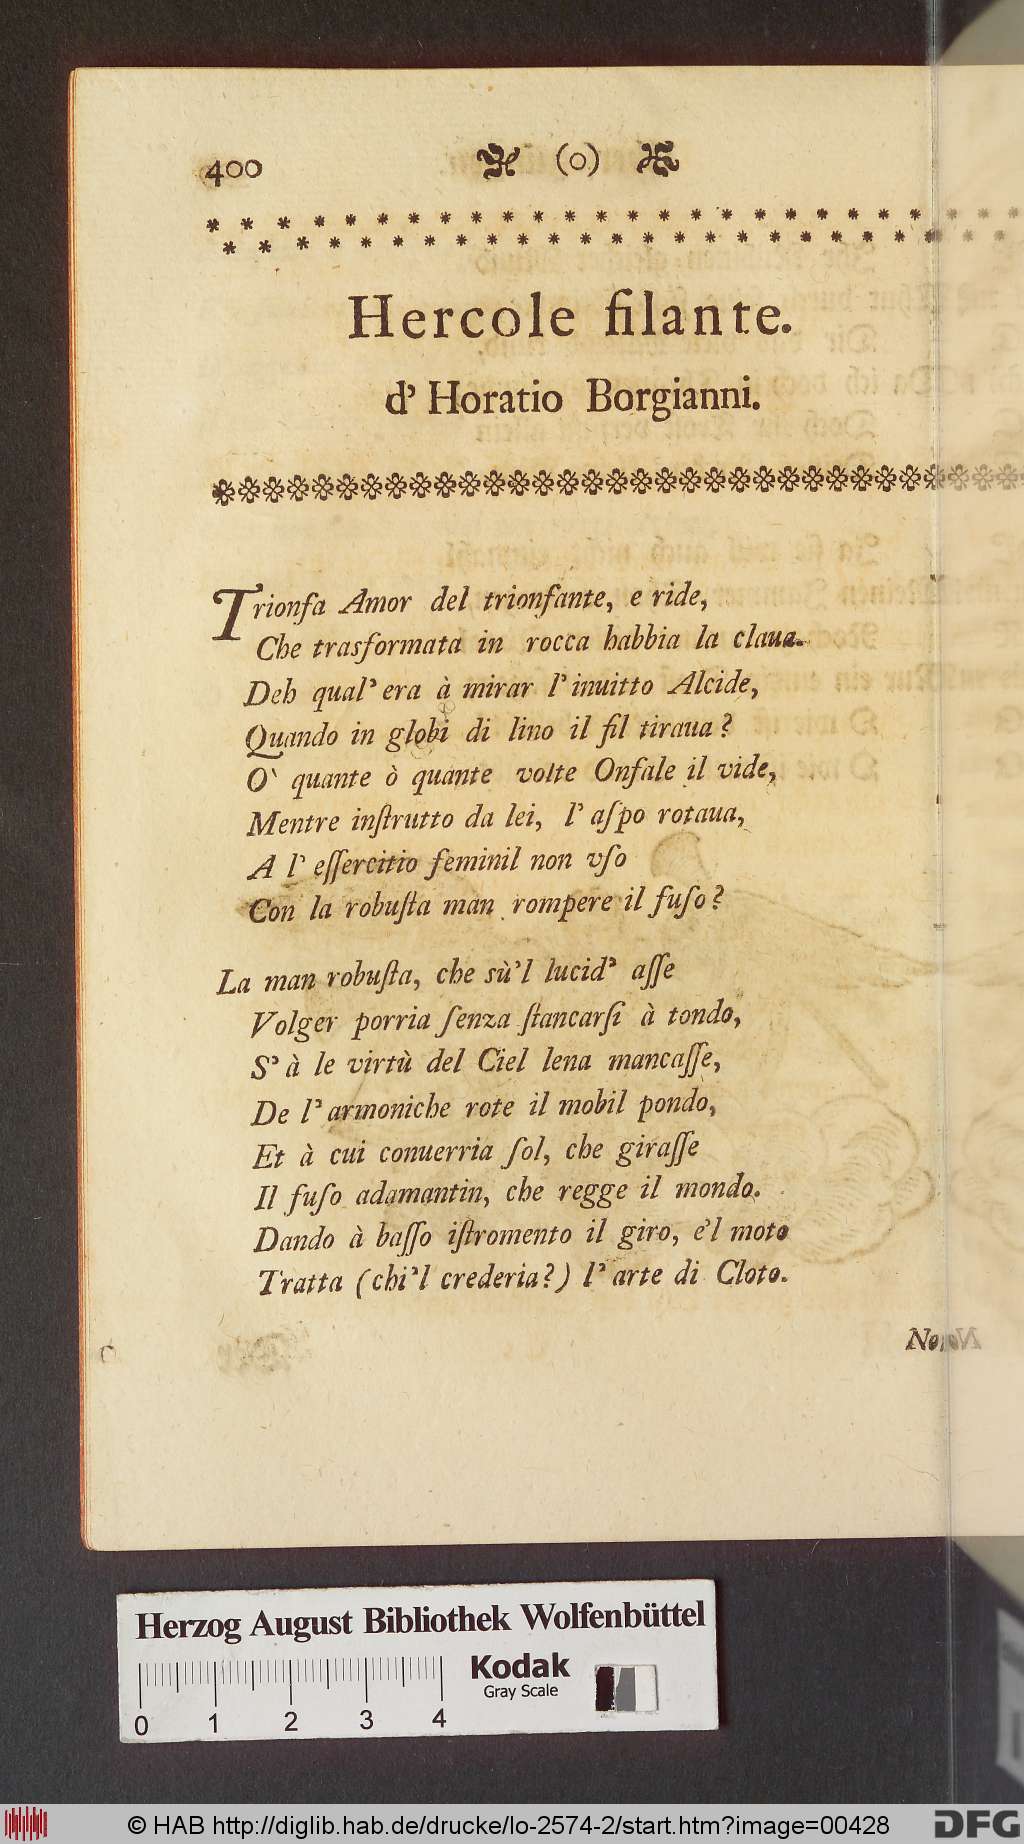 400 (o)
Hercole filante.
d' Horatio Borgianni.
Trionfa Amor del trionfante, e ride,
Che trasformata in rocca habbia la claua.
Deh qual' era à mirar l' inuitto Alcide,
Quando in globi di lino il fil tiraua?
O` quante ò quante volte Onfale il vide,
Mentre inſtrutto da lei, l' aſpo rotaua,
A l' eſſercitio feminil non vſo
Con la robuſta man rompere il fuſo?
La man robuſta, che sù'l lucid' aſſe
Volger porria ſenza ſtancarſi à tondo,
S' à le virtù del Ciel lena mancaſſe,
De l' armoniche rote il mobil pondo,
Et à cui conuerria ſol, che giraſſe
Il fuſo adamantin, che regge il mondo.
Dando à baſſo iſtromento il giro, e'l moto
Tratta (chi'l crederia?) l' arte di Cloto.
Non
Herzog August Bibliothek Wolfenbüttel
Kodak
Gray Scale
0 1 2 3 4
© HAB http://diglib.hab.de/drucke/lo-2574-2/start.htm?image=00428
DFG